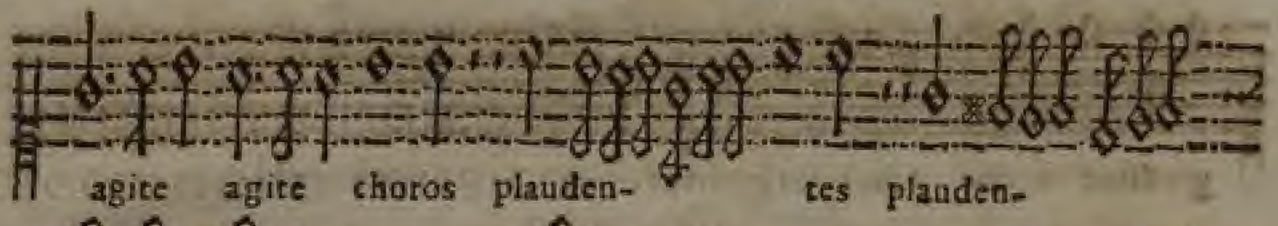 agite agite choros plauden- tes plauden-